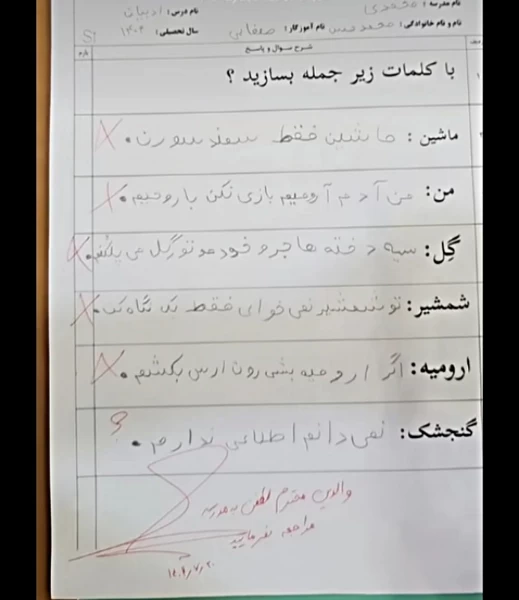 نام مدرسه: محمدی نام درس: ادبیات
نام و نام خانوادگی: محمد حسن نام آموزگار: صفایی سال تحصیلی: ۱۴۰۴ S1
ردیف شرح سوال و پاسخ بارم
۱ با کلمات زیر جمله بسازید ؟
ماشین: ماشین فقط سمند سورن.
من: من آدم آرومیم بازی نکن با روحیم.
گل: سیه دخته ها جر و خودمو تو گل می
شمشیر: تو شمشیر نمی خوای فقط یک نگاه کن.
ارومیه: اگر ارومیه بشی رون ارس بکشم.
گنجشک: نمی دانم اطلاعی ندارم. ?
والدین محترم لطفن به مدرسه
مراجعه بفرمایید